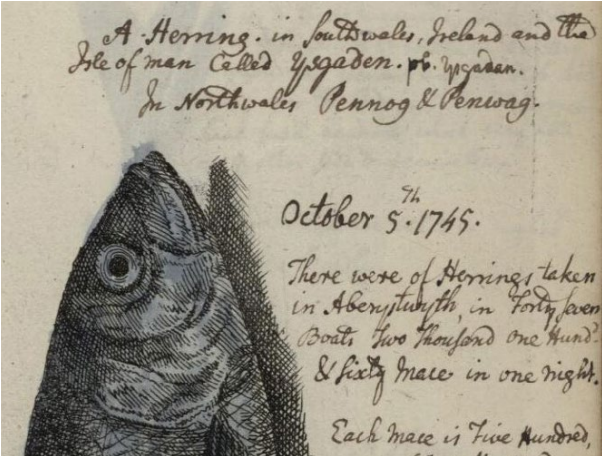 A Herring. in Southwales, Ireland and the
Isle of man Called Ysgaden. pb. ysgadan.
In Northwales Pennog & Penwag.
October 5.th 1745.
There were of Herrings taken
in Aberystwyth, in Forty seven
Boats Two Thousand one Hund.d
& Sixty Mace in one night.
Each Mace is Five Hundred,